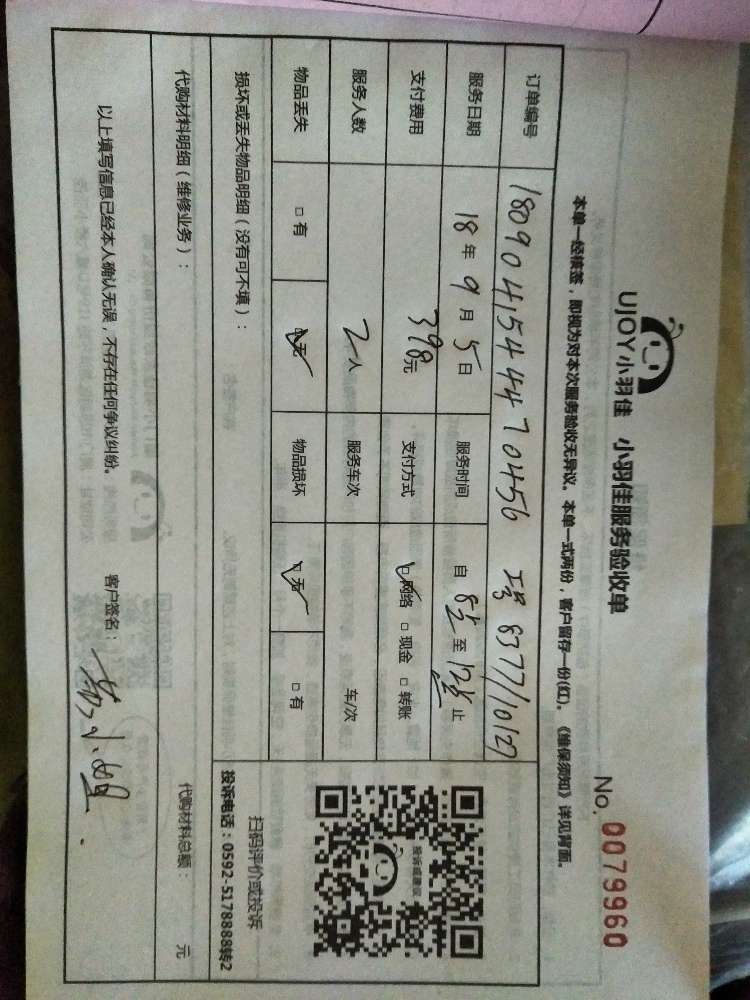 UJOY小羽佳 小羽佳服务验收单
No. 0079960
本单一经核签，即视为对本次服务验收无异议。本单一式两份，客户留存一份(红)。《维保须知》详见背面。
订单编号 180904154447045６ 工号 8377/10127
服务日期 18年9月5日 服务时间 自8点至12点止
支付费用 398元 支付方式 ☑网络 □现金 □转账
服务人数 2人 服务车次 车/次
物品丢失 □有 ☑无 物品损坏 ☑无 □有
损坏或丢失物品明细（没有可不填）：
投诉或建议
扫码评价或投诉
投诉电话：0592-5178888转2
代购材料明细（维修业务）： 代购材料总额： 元
以上填写信息已经本人确认无误，不存在任何争议纠纷。 客户签名：